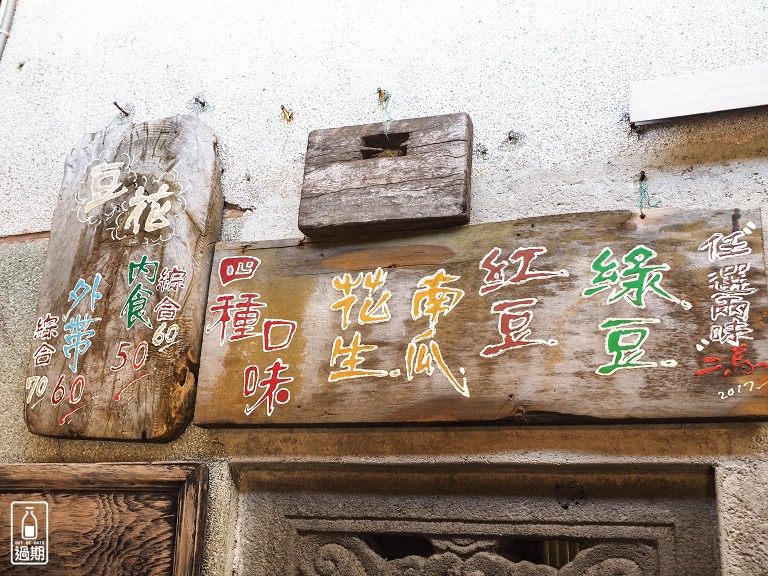 豆花
內食50
綜合60
外帶60
綜合70
任選兩味
綠豆
紅豆
南瓜
花生
四種口味
二馬
2017
OUT OF DATE
過期